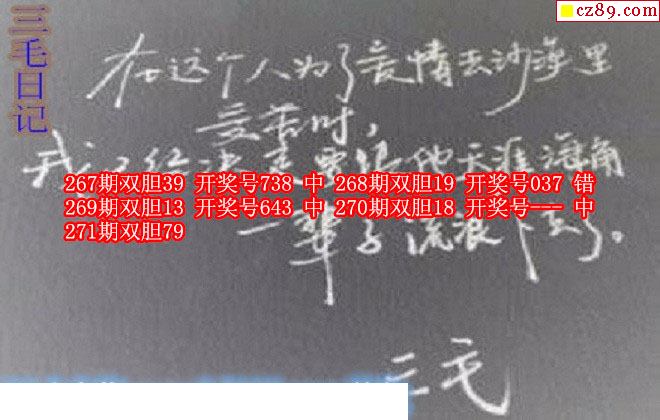 cz89.com
三毛日记
在这个人为了爱情去沙漠里
受苦时,
我心里已经决定要跟他天涯海角
267期双胆39 开奖号738 中 268期双胆19 开奖号037 错
269期双胆13 开奖号643 中 270期双胆18 开奖号--- 中
271期双胆79
一辈子流浪下去了。
三毛